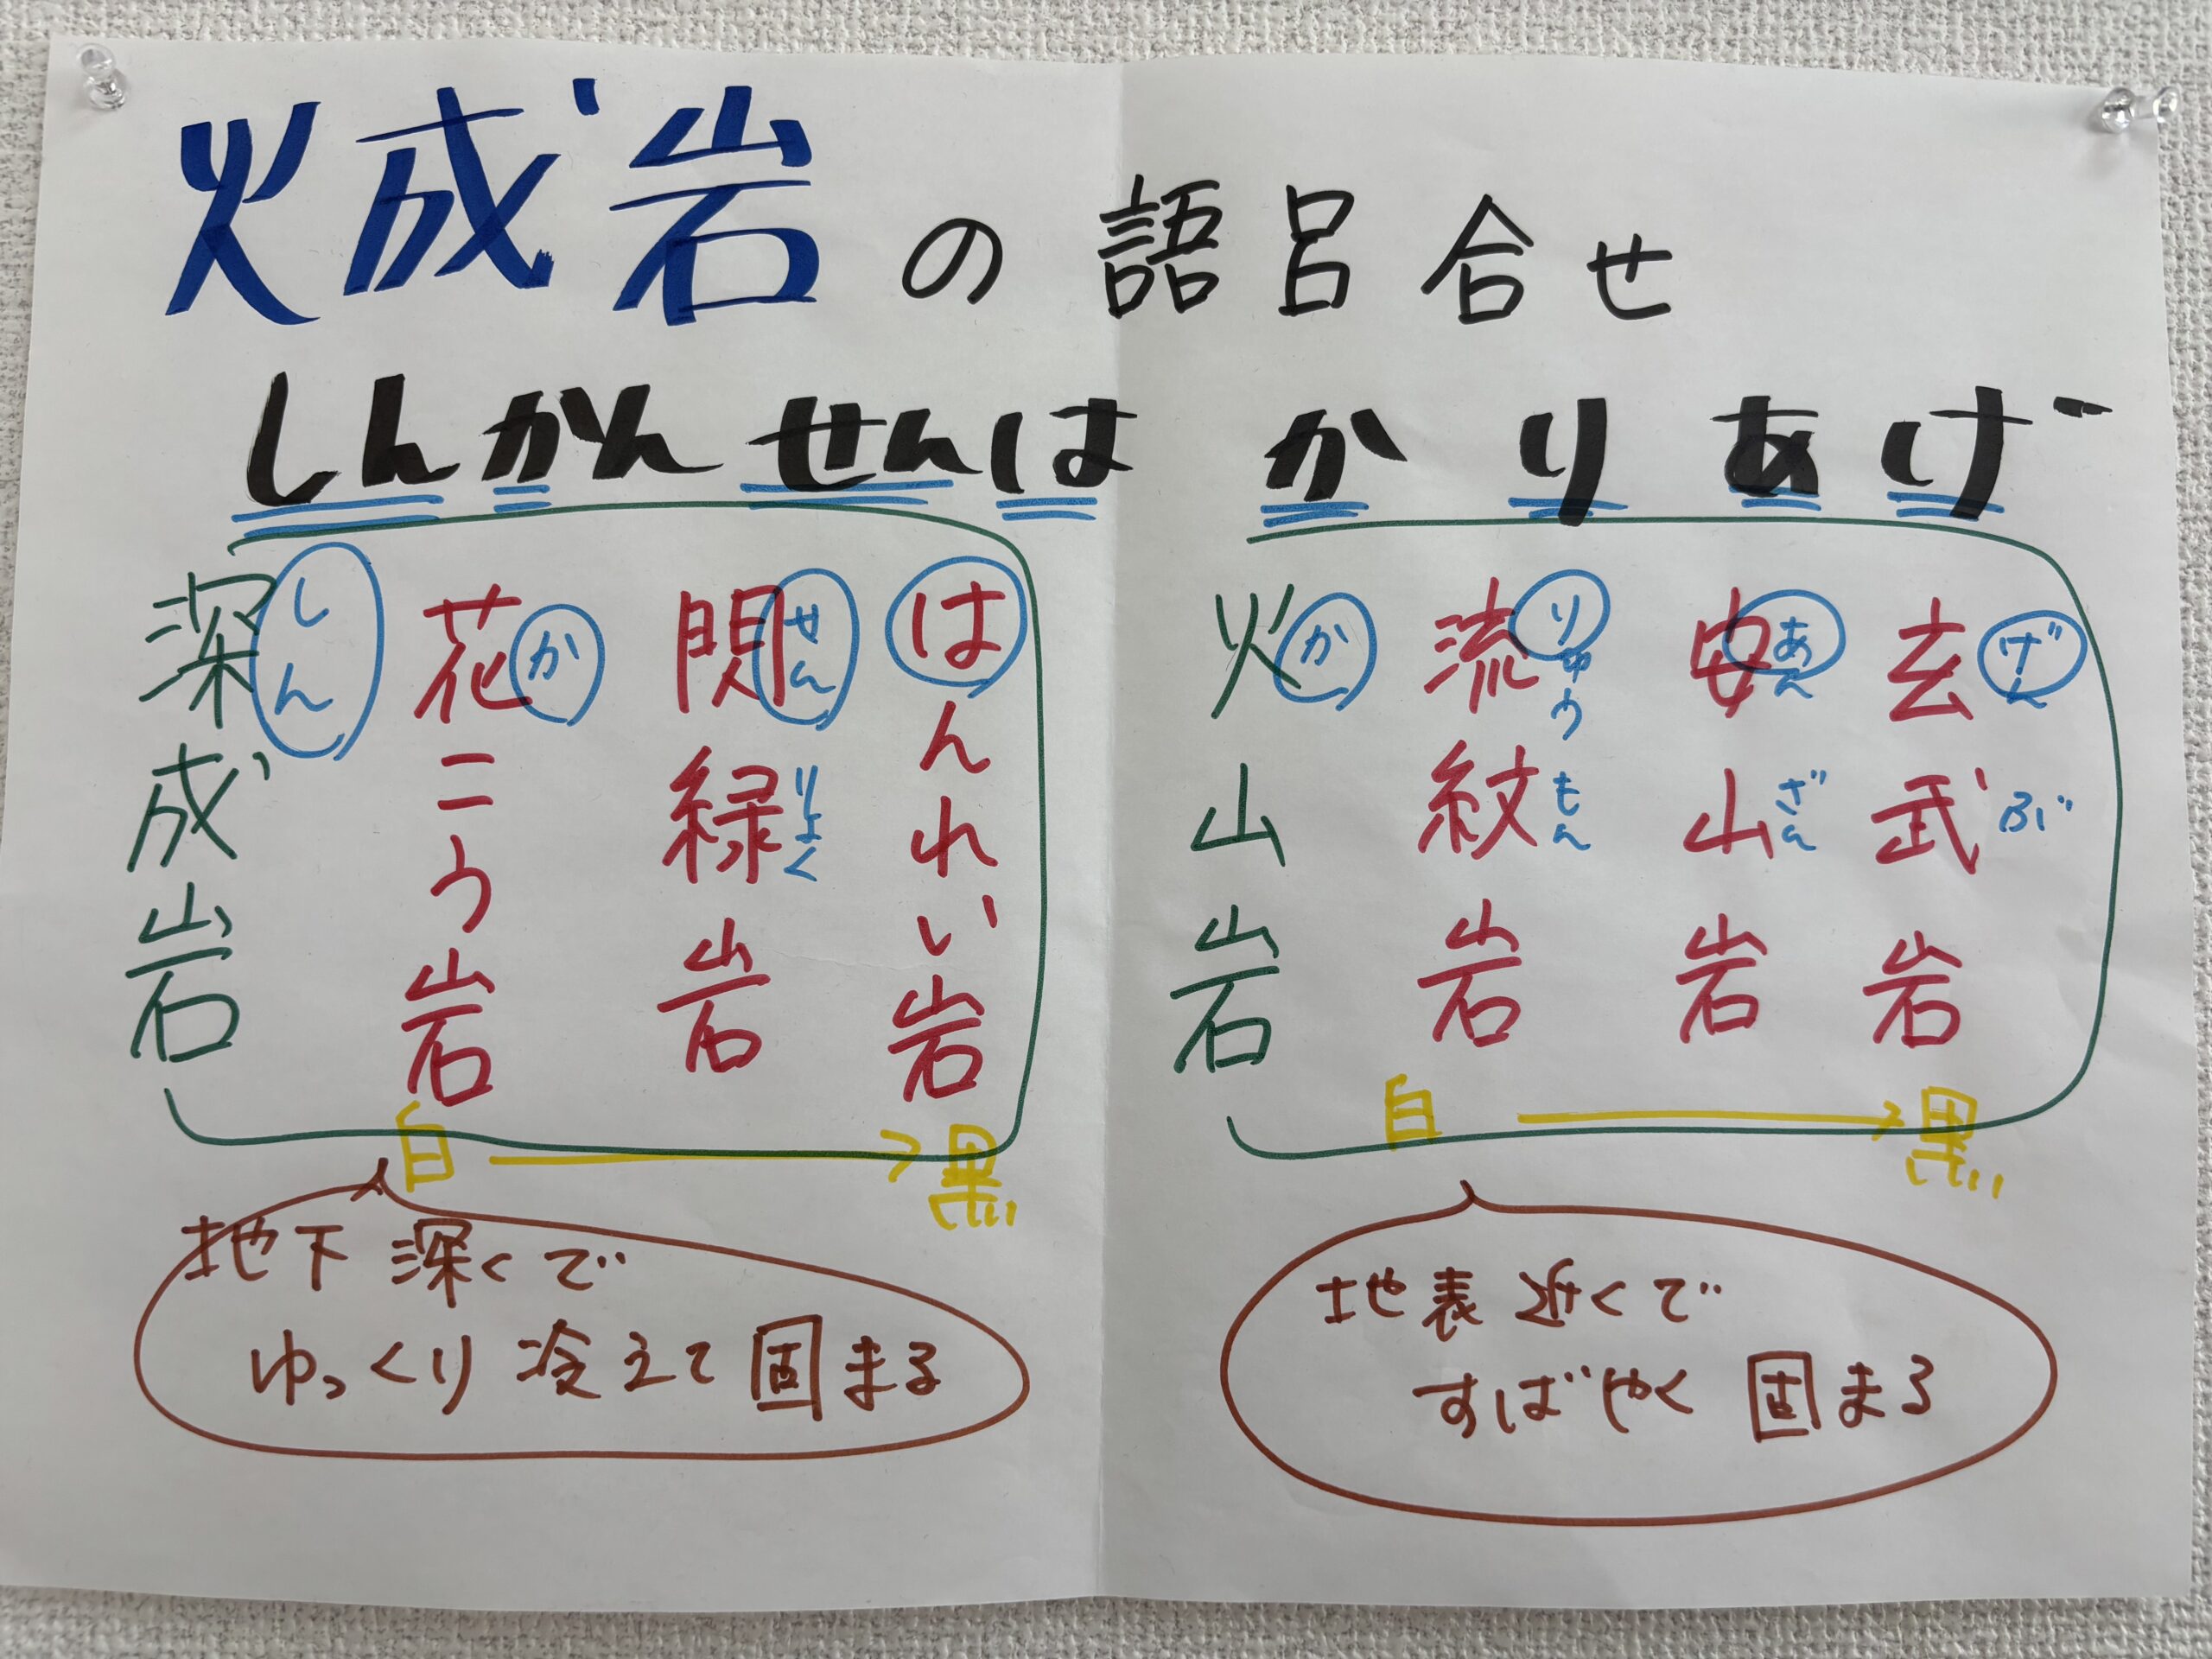 火成岩の語呂合せ
しんかんせんは かりあげ
深成岩
しん
花こう岩
か
閃緑岩
せん りょく
はんれい岩
白 → 黒
地下深くで
ゆっくり冷えて固まる
火山岩
か
流紋岩
りゅう もん
安山岩
あん ざん
玄武岩
げん ぶ
白 → 黒
地表近くで
すばやく固まる